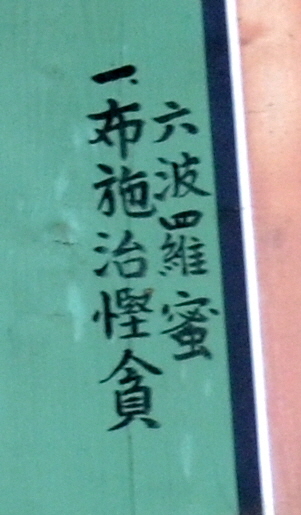 六波羅維蜜
一、布施治慳貪